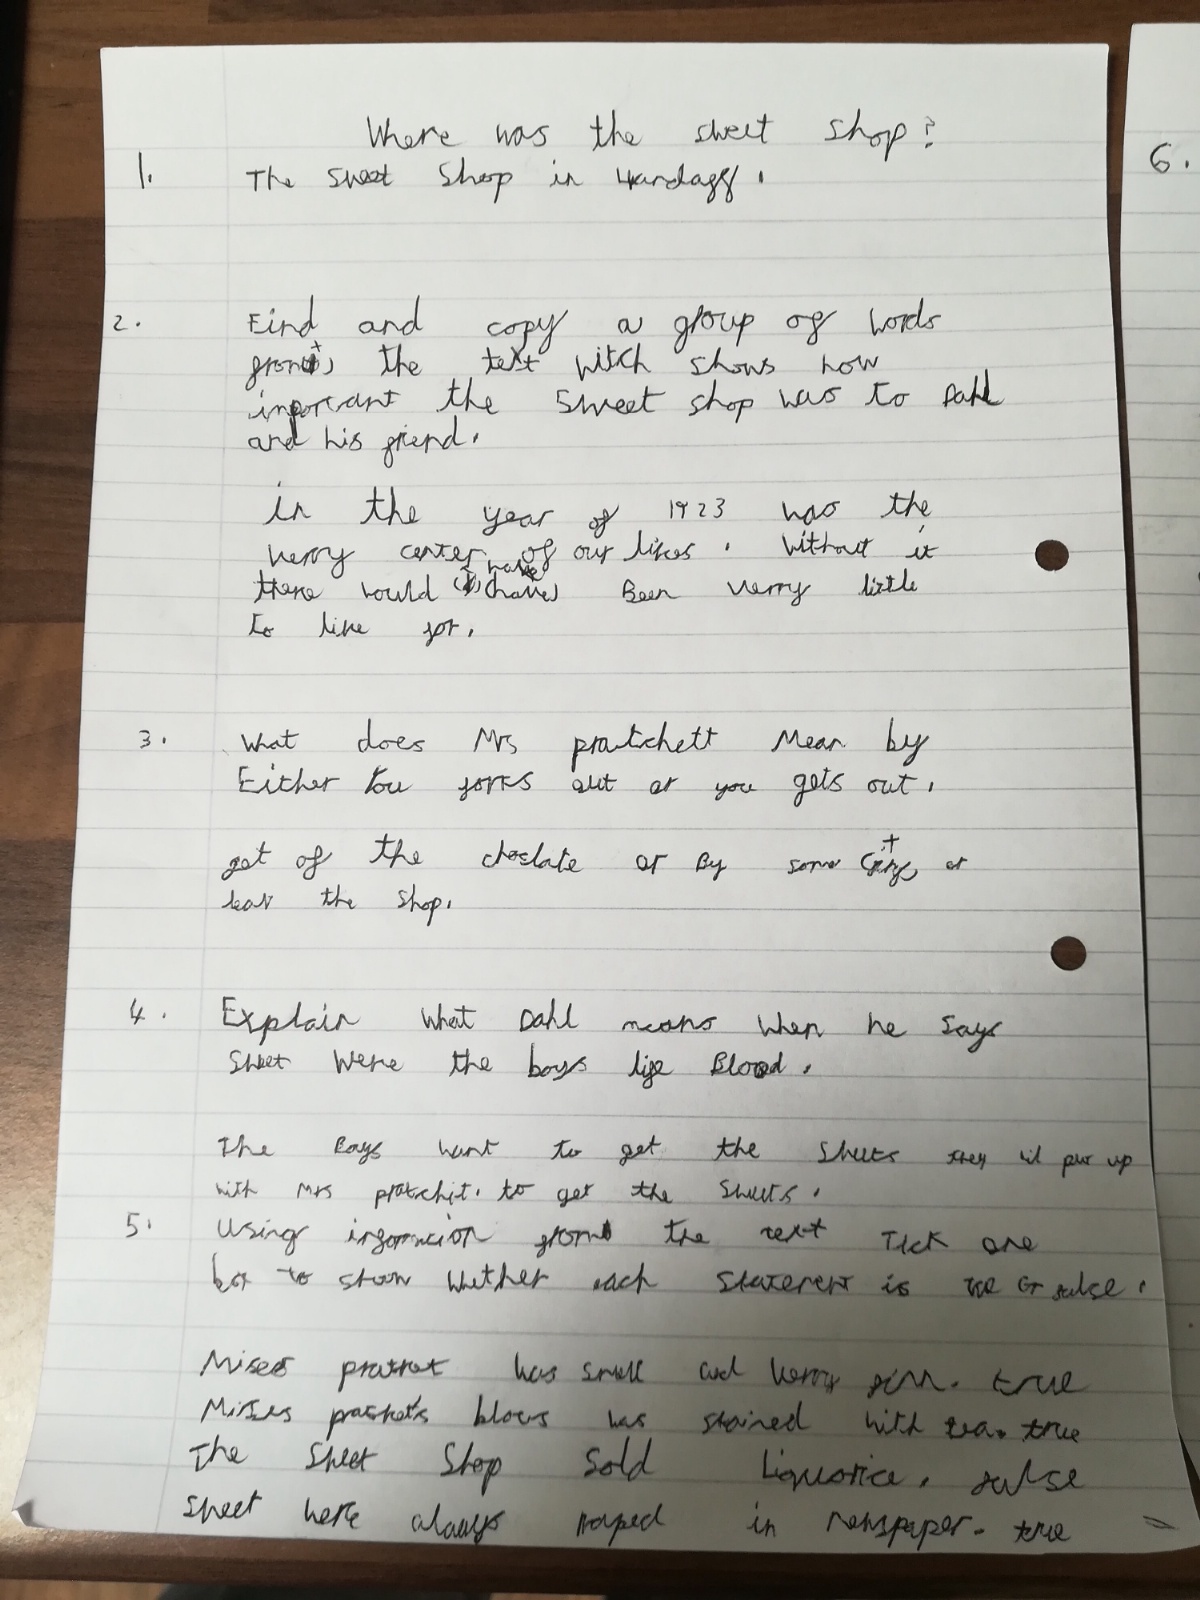 Where was the sweet shop?
1. The sweet shop in Llandaff.
2. Find and copy a group of words
from the text witch shows how
important the sweet shop was to Dahl
and his friend.
in the year of 1923 was the
verry center of our lives. Without it
there would have been verry little
to live for.
3. What does Mrs pratchett Mean by
Either You forks out or you gets out.
get of the choclate or By some or
leav the shop.
4. Explain what Dahl means when he says
Sweet were the boys life Blood.
The Boys want to get the sweets they put up
with Mrs pratchit. to get the sweets.
5. Using informcion from the text Tick one
box to show whether each statement is or false.
Mises was small and verry true
Mises blous was stained with tea. true
The Sweet Shop Sold Liquorice. false
Sweet were always raped in newspaper. true
6.